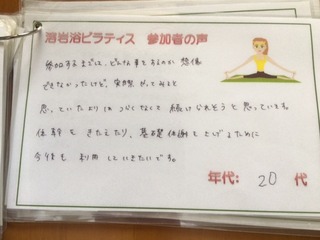 溶岩浴ピラティス 参加者の声
参加するまでは、どんな事をするのか 想像
できなかったけど、実際 やってみると
思っていたよりは つらくなくて 続けられそうと 思っています。
体幹を きたえたり、基礎体力を 上げるために
今後も 利用 していきたいです。
年代: 20 代